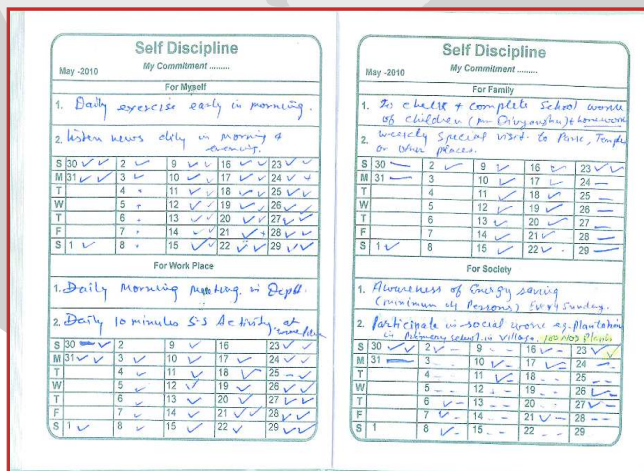 Self Discipline
May -2010 My Commitment .........
For Myself
1. Daily exercise early in morning.
2. listen news dily in morning &
evening.
S 30 ✓✓ 2 ✓ 9 ✓✓ 16 ✓✓ 23 ✓✓
M 31 ✓✓ 3 ✓ 10 ✓✓ 17 ✓✓ 24 ✓✓
T 4 11 ✓✓ 18 ✓✓ 25 ✓✓
W 5 12 ✓✓ 19 ✓✓ 26 ✓✓
T 6 13 ✓✓ 20 ✓✓ 27 ✓✓
F 7 14 ✓✓ 21 ✓✓ 28 ✓✓
S 1 ✓ 8 15 ✓✓ 22 ✓✓ 29 ✓✓
For Work Place
1. Daily Morning meeting in Deptt.
2. Daily 10 minutes 5-S Activity at
S 30 –✓ 2 9 16 23 ✓✓
M 31 ✓✓ 3 ✓ 10 ✓ 17 ✓ 24 ✓✓
T 4 ✓ 11 ✓ 18 ✓ 25 –✓
W 5 ✓ 12 ✓ 19 ✓ 26 ✓✓
T 6 ✓ 13 ✓ 20 ✓ 27 ✓✓
F 7 ✓ 14 ✓ 21 ✓✓ 28 ✓✓
S 1 ✓ 8 ✓ 15 ✓ 22 ✓ 29 ✓✓
Self Discipline
May -2010 My Commitment .........
For Family
1. To check & complete School work
of children (Mr Divyanshu) & homework
2. weekly special visit to Park, Temple
or other places.
S 30 – 2 ✓ 9 ✓ 16 ✓ 23 ✓✓
M 31 – 3 10 ✓ 17 ✓ 24 –
T 4 11 ✓ 18 ✓ 25 –
W 5 12 ✓ 19 ✓ 26 –
T 6 13 ✓ 20 ✓ 27 –
F 7 14 ✓ 21 ✓ 28 –
S 1 ✓ 8 15 ✓ 22 ✓ 29 –
For Society
1. Awareness of Energy saving
(minimum 4 Persons) Every Sunday.
2. Participate in social work eg. Plantation
in Primary school in village. 100 Nos Plants
S 30 ✓✓ 2 ✓– 9 – – 16 ✓– 23 ✓✓
M 31 – 3 10 ✓– 17 ✓– 24 –
T 4 – – 11 ✓– 18 – – 25 – –
W 5 – – 12 – – 19 – – 26 ✓–
T 6 ✓– 13 – – 20 – – 27 ✓–
F 7 ✓– 14 – – 21 ✓– 28 – –
S 1 8 ✓– 15 – – 22 – – 29